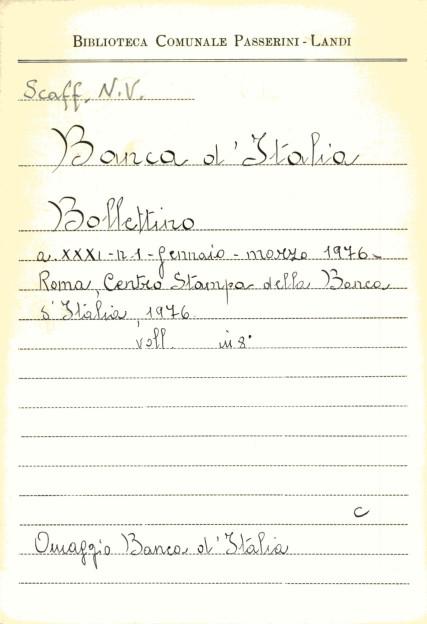 BIBLIOTECA COMUNALE PASSERINI - LANDI
Scaff. N.V.
Banca d'Italia
Bollettino
a. XXXI - n. 1 - gennaio - marzo 1976 -
Roma, Centro Stampa della Banca
d'Italia, 1976.
voll. in 8°
C
Omaggio Banca d'Italia